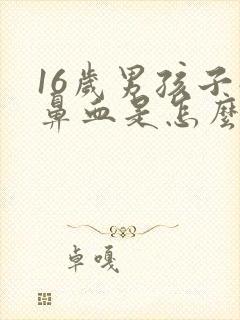 16歲男孩子
鼻血是怎麼
卓嘎